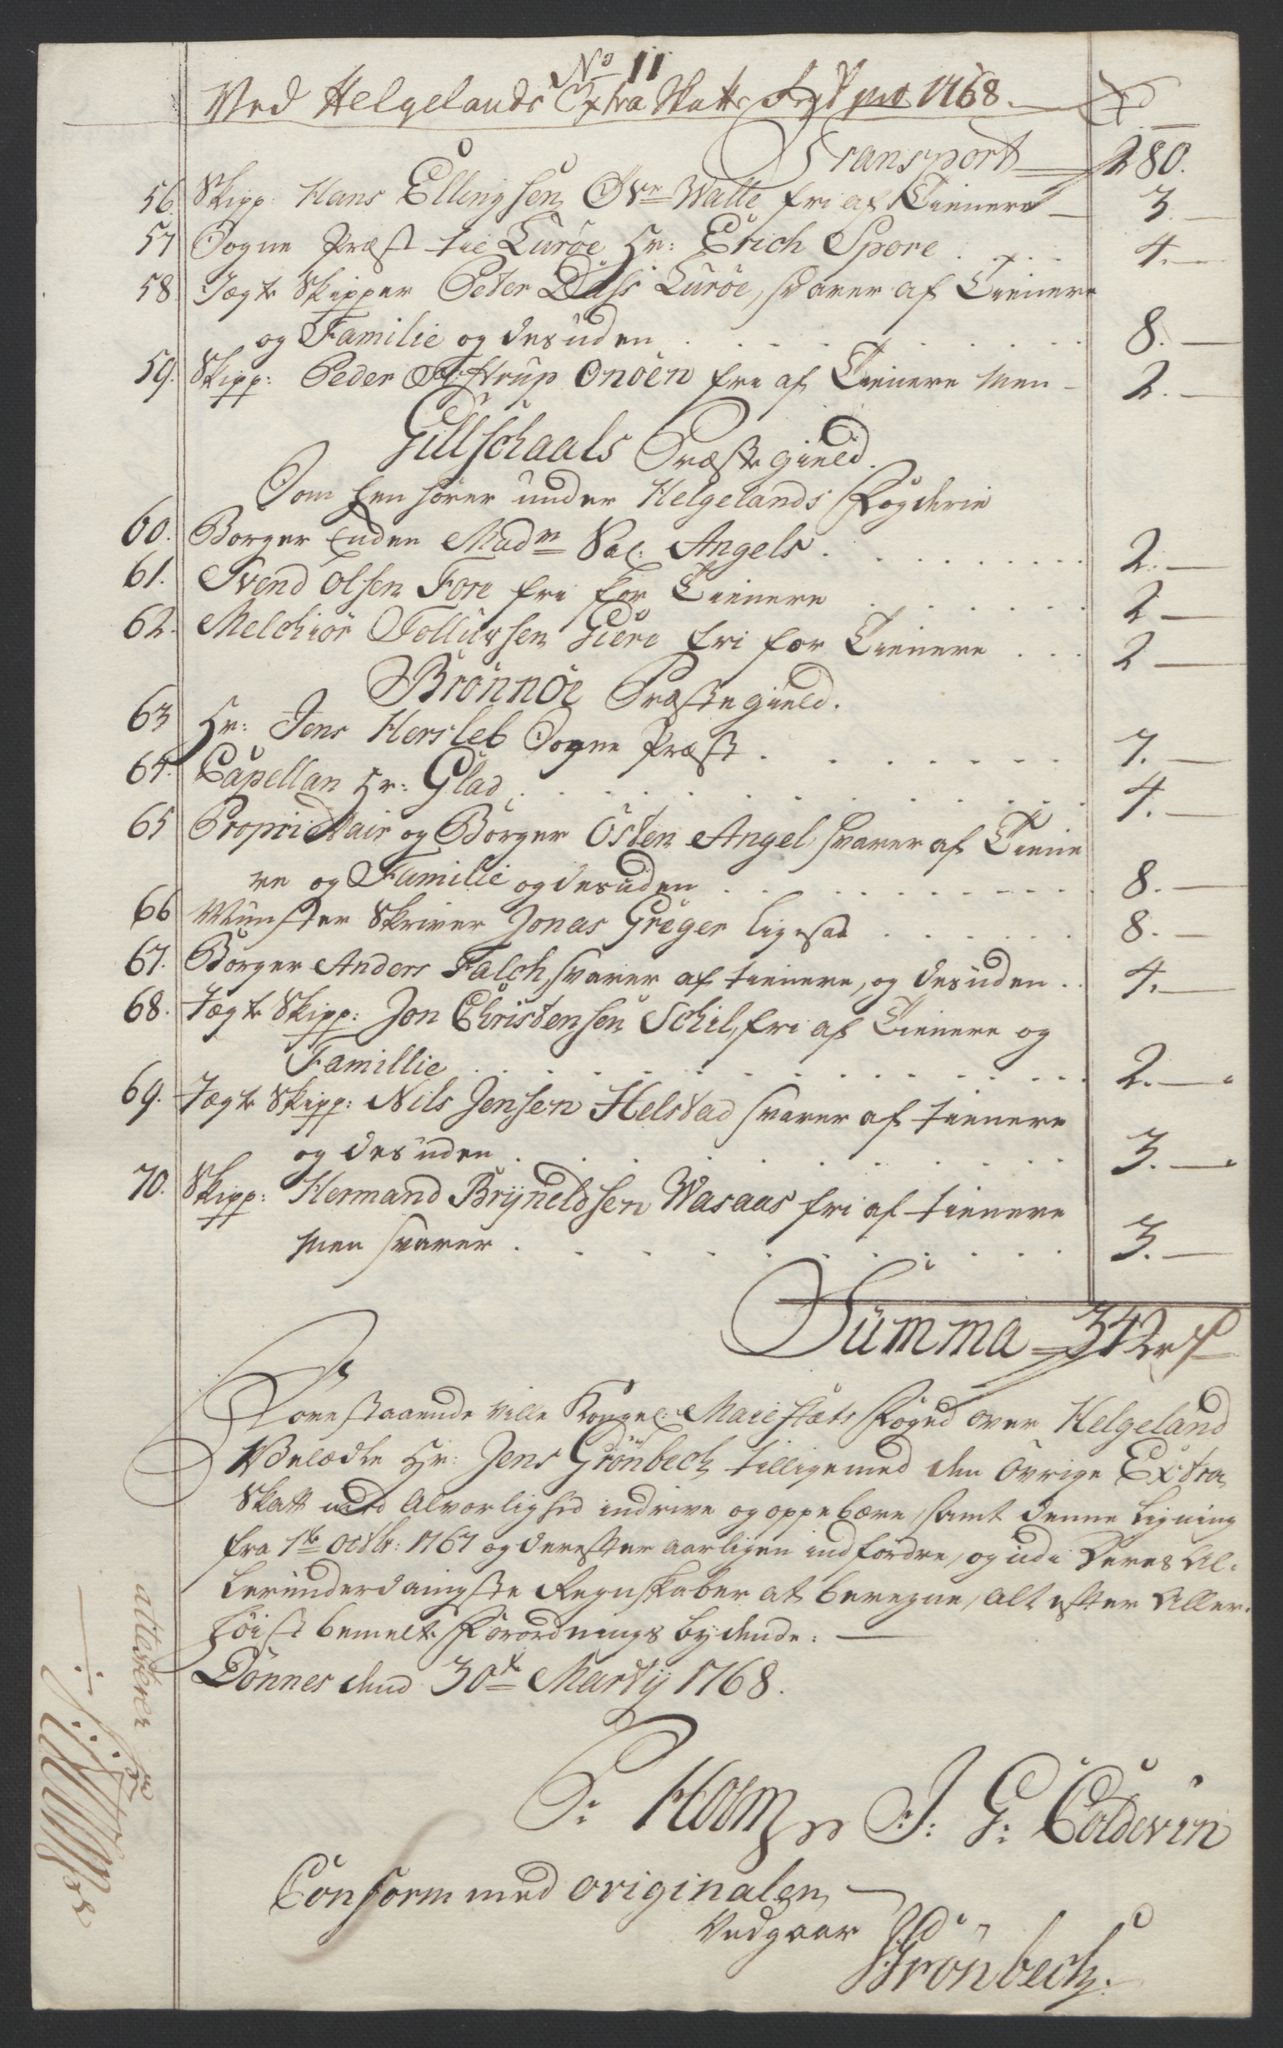 No 11
Ved Helgelands Extra Skatte Regsk pro 1768. Rd
Transport 280.
56. Skipp: Hans Ellingsen Øvre Walle fri af Tienere 3.
57 Sogne Præst til Lurøe Hr: Erich Spore . . . . 4.
58. Jægte Skipper Peter Dass Lurøe, svarer af Tienere
og Familie og desuden . . . . . 8.
59. Skipp: Peder Onøen fri af Tienere men 2.
Gillschaals Præstegield.
Som hen hører under Helgelands Fogderie
60. Borger Enken Madm Sal. Angels . . . . . 2.
61. Svend Olsen Fore fri for Tienere . . . . . 2
62. Melchior Follursen fri for Tienere . . . 2
Brønnøe Præstegield.
63 Hr: Jens Hersleb Sogne Præst . . . . . 7.
64. Capellan Hr: Glad . . . . . 4.
65 Proprietair og Borger Østen Angel svarer af Tiene
re og Familie og desuden . . . . . 8.
66 Mynster Skriver Jonas Greger ligesaa . . . . . 8.
67. Borger Anders Falch, svarer af tienere, og desuden . . 4.
68. Jægte Skipp: Jon Christensen Schil, fri af Tienere og
Famillie . . . . . 2.
69. Jægte Skipp: Nils Jensen Helstad svarer af tienere
og desuden . . . . . 3.
70. Skipp: Hermand Bryneldsen Wasaas fri af tienere
men svarer . . . . . 3.
Summa 342 rd
Forestaaende ville Kongel: Maiestæts Foged over Helgeland
Velædle Hr: Jens Grønbech tilligemed den Øvrige Extra
Skatt med Alvorlighed indrive og oppebære, samt denne Ligning
fra 1te Octbr: 1767 og derefter aarligen indfordre, og udi Deres Al-
lerunderdanigste Regnskaber at beregne, alt efter Aller-
høist bemelte Forordnings bydende.
Dønnes dend 30te Martÿ 1768.
P: Holm J: G: Coldevin
Conform med originalen
Vedgaar
Grønbech.
attesterer